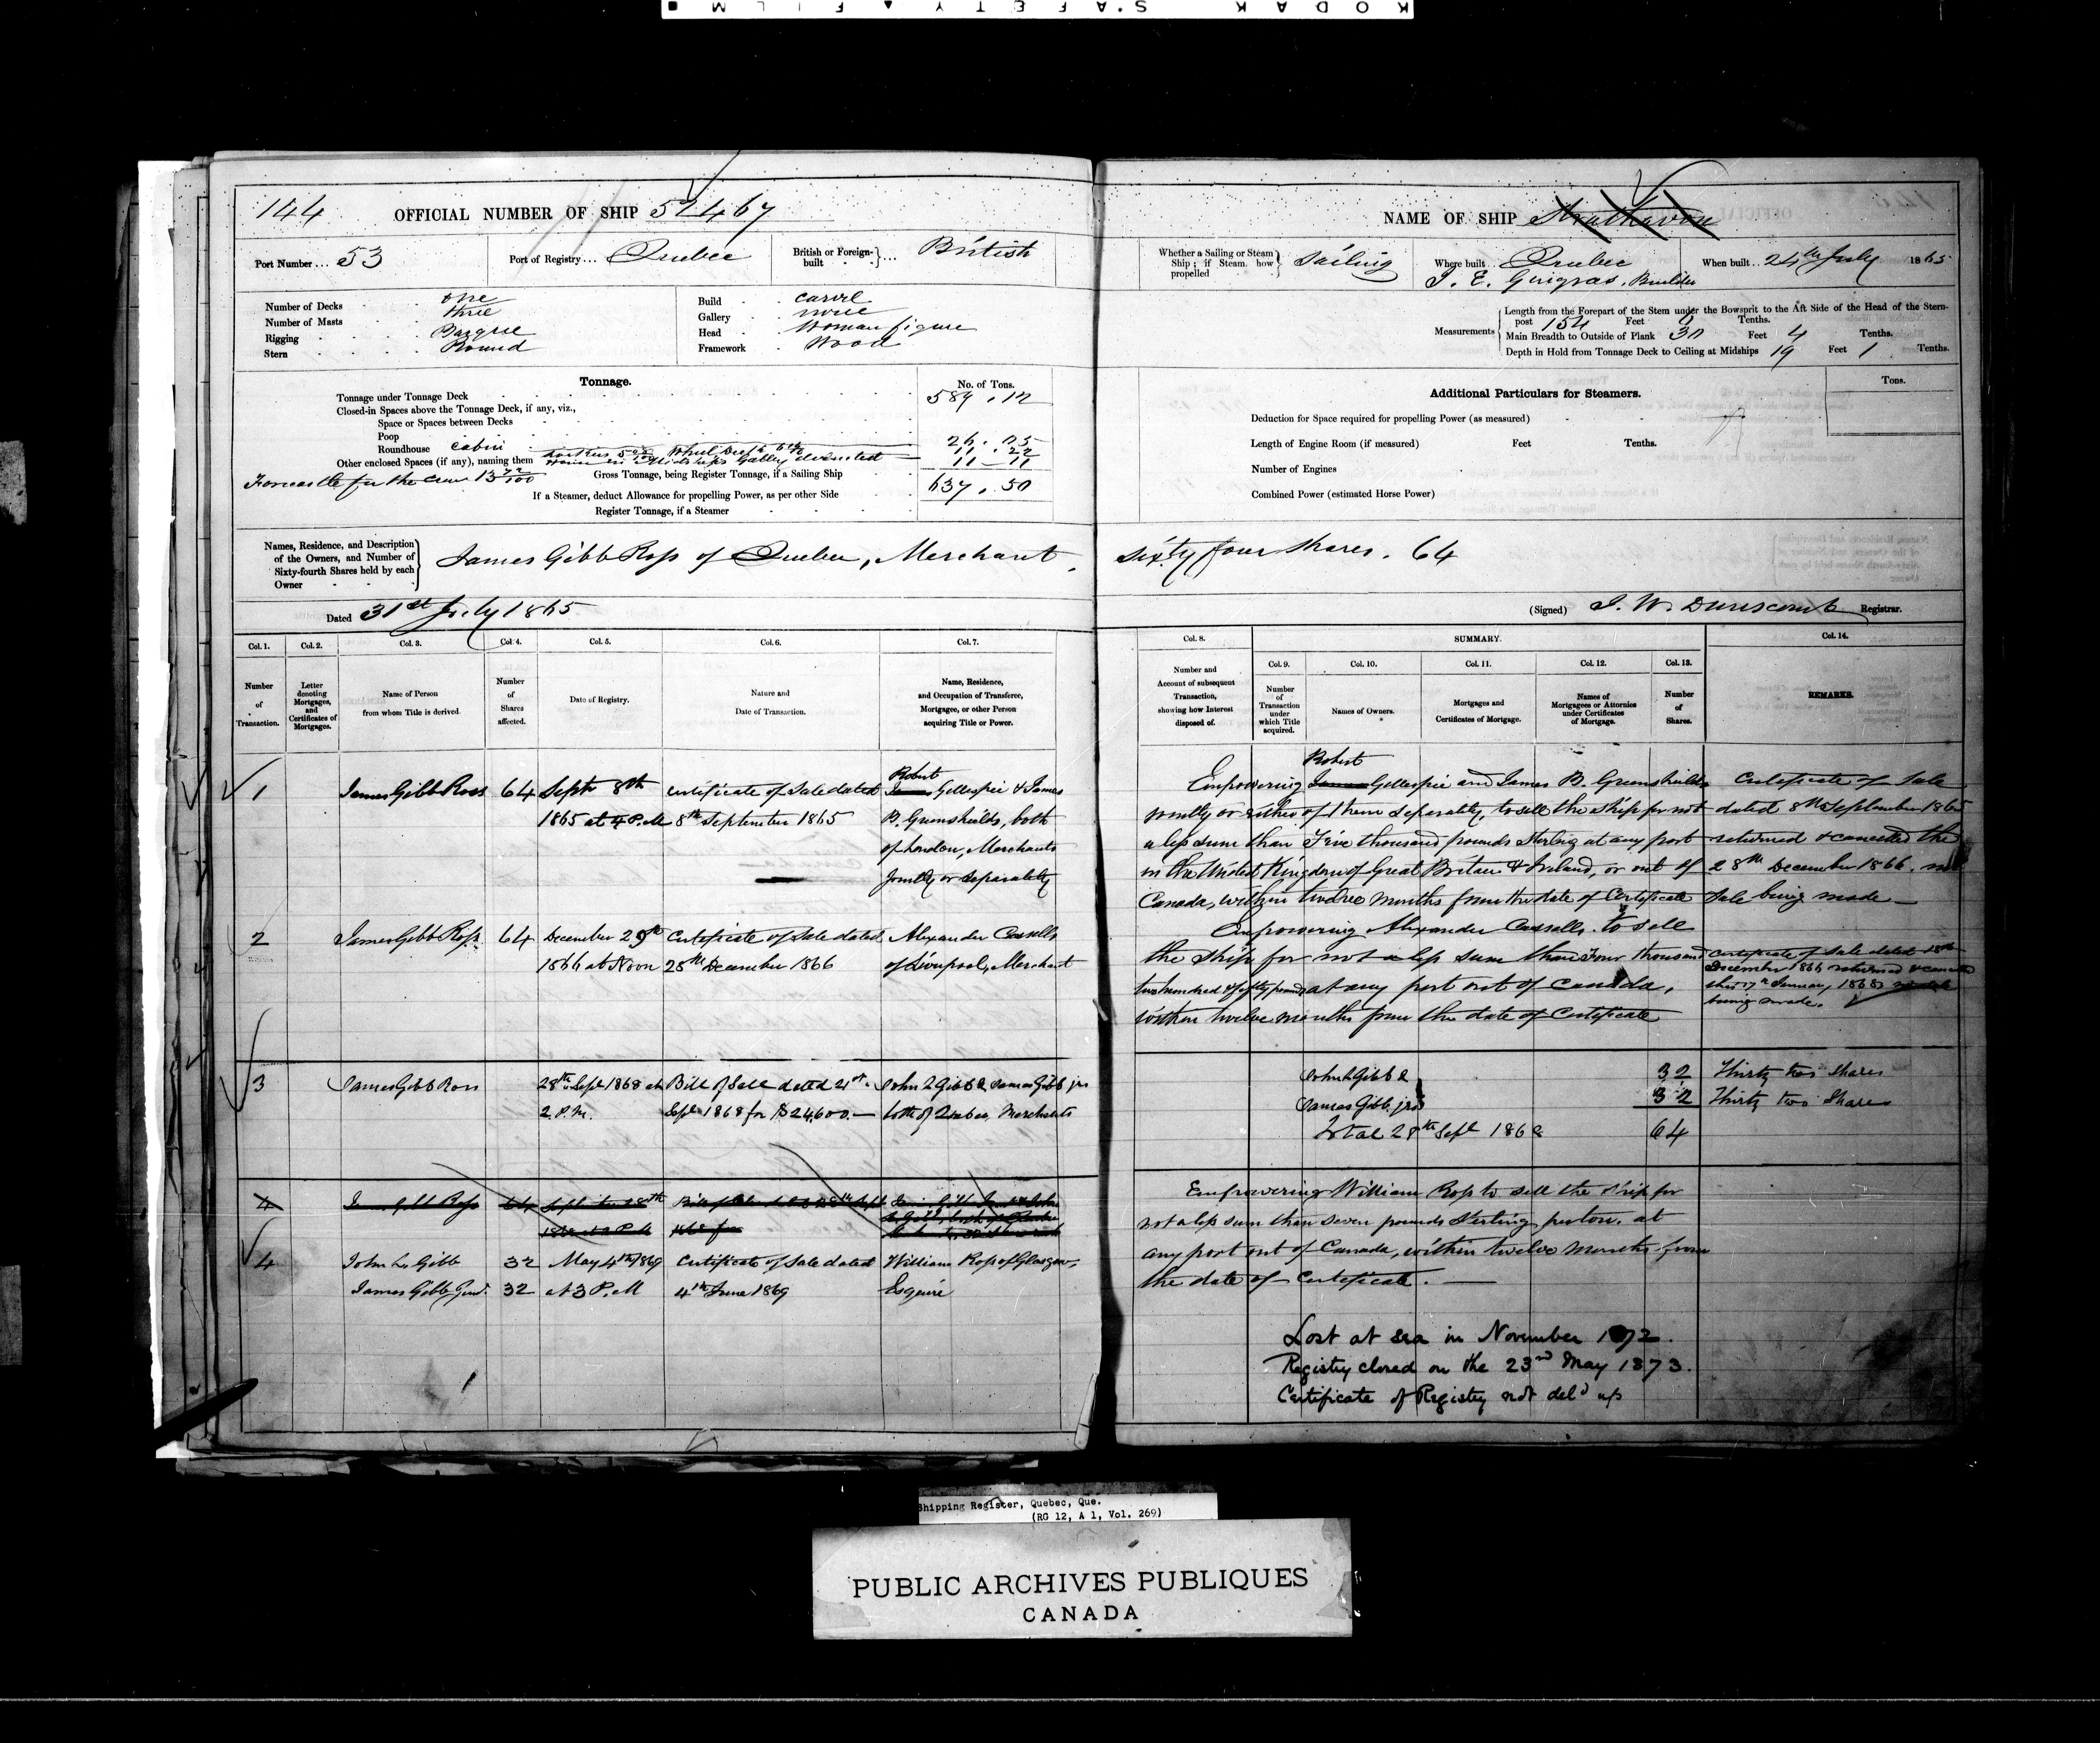 KODAK SAFETY FILM
144 OFFICIAL NUMBER OF SHIP 52467
NAME OF SHIP Strathavon
Port Number... 53 Port of Registry... Quebec British or Foreign-built } ... British
Whether a Sailing or Steam Ship; if Steam how propelled } Sailing Where built.. Quebec When built.. 24th July 1865
J. E. Gingras, Builder
Number of Decks one
Number of Masts three
Rigging Barque
Stern Round
Build carvel
Gallery none
Head Woman figure
Framework Wood
Measurements
Length from the Forepart of the Stem under the Bowsprit to the Aft Side of the Head of the Stern-
post 154 Feet 0 Tenths.
Main Breadth to Outside of Plank 30 Feet 4 Tenths.
Depth in Hold from Tonnage Deck to Ceiling at Midships 19 Feet 1 Tenths.
Tonnage. No. of Tons.
Tonnage under Tonnage Deck 589.12
Closed-in Spaces above the Tonnage Deck, if any, viz.,
Space or Spaces between Decks
Poop
Roundhouse cabin 26.05
11.22
Other enclosed Spaces (if any), naming them 11-11
Forecastle for the Crew 13 72/100
Gross Tonnage, being Register Tonnage, if a Sailing Ship 637.50
If a Steamer, deduct Allowance for propelling Power, as per other Side
Register Tonnage, if a Steamer
Additional Particulars for Steamers. Tons.
Deduction for Space required for propelling Power (as measured)
Length of Engine Room (if measured) Feet Tenths.
Number of Engines
Combined Power (estimated Horse Power)
Names, Residence, and Description
of the Owners, and Number of
Sixty-fourth Shares held by each
Owner
James Gibb Ross of Quebec, Merchant, sixty four shares. 64
Dated 31st July 1865
(Signed) J. W. Dunscomb Registrar.
Col. 1. Col. 2. Col. 3. Col. 4. Col. 5. Col. 6. Col. 7.
Number of Transaction.
Letter denoting Mortgages, and Certificates of Mortgages.
Name of Person from whom Title is derived.
Number of Shares affected.
Date of Registry.
Nature and Date of Transaction.
Name, Residence, and Occupation of Transferee, Mortgagee, or other Person acquiring Title or Power.
Col. 8. SUMMARY. Col. 14.
Col. 9. Col. 10. Col. 11. Col. 12. Col. 13.
Number and Account of subsequent Transaction, showing how Interest disposed of.
Number of Transaction under which Title acquired.
Names of Owners.
Mortgages and Certificates of Mortgage.
Names of Mortgagees or Attornies under Certificates of Mortgage.
Number of Shares.
REMARKS.
Robert
1 James Gibb Ross 64 Septr 8th Certificate of Sale dated James Gellespie & James
1865 at 4 P.M 8th September 1865 B. Greenshields, both
of London, Merchants
Jointly or Separately
Robert
Empowering James Gellespie and James B. Greenshields
jointly or either of them separately, to sell the ship for not
a less sum than Five thousand pounds Sterling at any port
in the United Kingdom of Great Britain & Ireland, or out of
Canada, within twelve months from the date of Certificate
Certificate of Sale
dated 8th September 1865
returned & cancelled the
28th December 1866. no
Sale being made
2 James Gibb Ross. 64 December 29th Certificate of Sale dated Alexander Cassells
1866 at Noon 28th December 1866 of Liverpool, Merchant
Empowering Alexander Cassells. to sell
the Ship for not a less sum than Four thousand
two hundred & fifty pounds at any port out of Canada,
within twelve months from the date of Certificate
Certificate of Sale dated 28th
December 1866 returned & cancelled
this 17th January 1868
being made.
3 James Gibb Ross 28th Sept 1868 at Bill of Sale dated 21st John L Gibb & James Gibb jnr
2 P.M. Sept 1868 for $24,600.— both of Quebec, Merchants
John L Gibb & 32 Thirty two Shares
James Gibb jnr 32 Thirty two Shares
Total 28th Sept 1868 64
4 James Gibb Ross 64
4 John L. Gibb 32 May 4th 1869 Certificate of Sale dated William Ross of Glasgow,
James Gibb Junr. 32 at 3 P.M 4th June 1869 Esquire
Empowering William Ross to sell the Ship for
not a less sum than seven pounds Sterling per ton, at
any port out of Canada, within twelve months from
the date of Certificate.
Lost at sea in November 1872.
Registry closed on the 23rd May 1873.
Certificate of Registry not deld up
Shipping Register, Quebec, Que.
(RG 12, A 1, Vol. 269)
PUBLIC ARCHIVES PUBLIQUES
CANADA